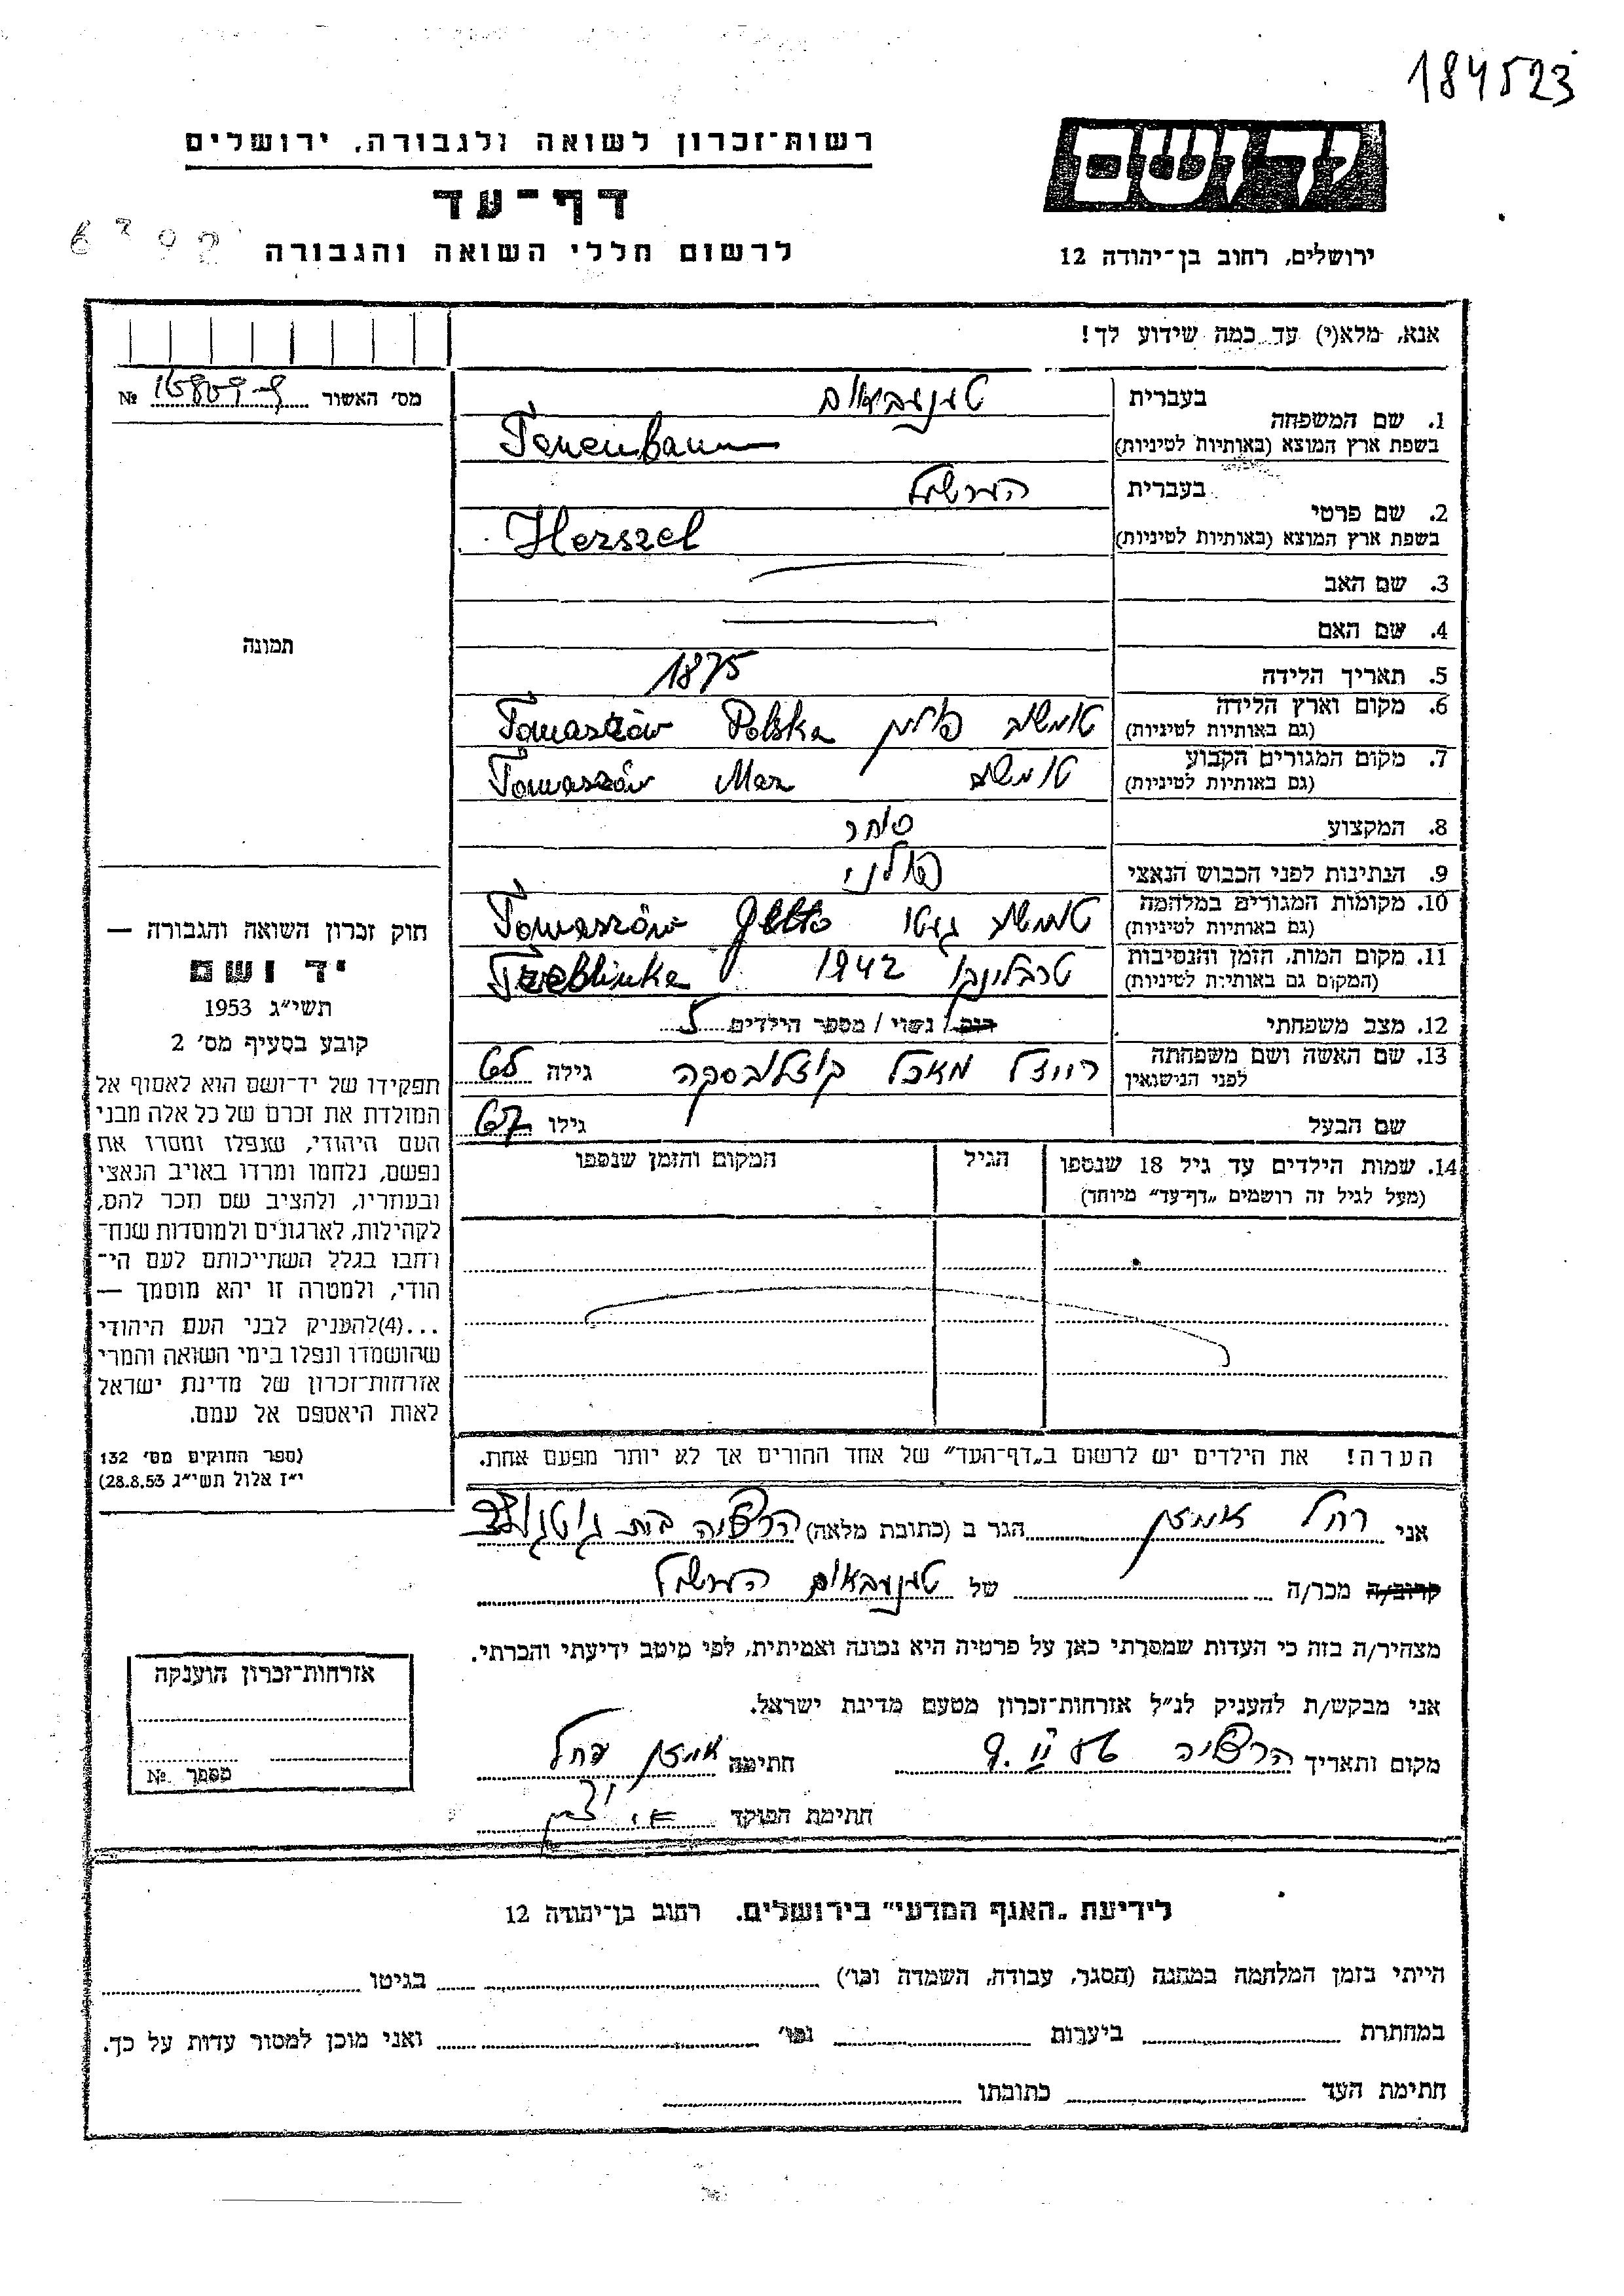 184523
רשות־זכרון לשואה ולגבורה, ירושלים
יד ושם
דף־עד
לרשום חללי השואה והגבורה
ירושלים, רחוב בן־יהודה 12
אנא, מלא(י) עד כמה שידוע לך!
מס׳ האשור №
1. שם המשפחה
בעברית טננבאום
בשפת ארץ המוצא (באותיות לטיניות) Tenenbaum
2. שם פרטי
בעברית הערשל
בשפת ארץ המוצא (באותיות לטיניות) Herszel
3. שם האב
4. שם האם
תמונה
5. תאריך הלידה 1875
6. מקום וארץ הלידה (גם באותיות לטיניות) טומשב פולין Tomaszów Polska
7. מקום המגורים הקבוע (גם באותיות לטיניות) טומשב Tomaszów Maz
8. המקצוע סוחר
9. הנתינות לפני הכבוש הנאצי פולני
10. מקומות המגורים במלחמה (גם באותיות לטיניות) טומשב גטו Tomaszów Getto
11. מקום המות, הזמן והנסיבות (המקום גם באותיות לטיניות) טרבלינקה 1942 Treblinka
12. מצב משפחתי רוק/ נשוי / מספר הילדים 5
13. שם האשה ושם משפחתה לפני הנישואין רייזל גילה 65
שם הבעל גילו 67
14. שמות הילדים עד גיל 18 שנספו הגיל המקום והזמן שנספו
(מעל לגיל זה רושמים „דף־עד״ מיוחד)
הערה! את הילדים יש לרשום ב„דף־העד״ של אחד ההורים אך לא יותר מפעם אחת.
חוק זכרון השואה והגבורה —
יד ושם
תשי״ג 1953
קובע בסעיף מס׳ 2
תפקידו של יד־ושם הוא לאסוף אל
המולדת את זכרם של כל אלה מבני
העם היהודי, שנפלו ומסרו את
נפשם, נלחמו ומרדו באויב הנאצי
ובעוזריו, ולהציב שם וזכר להם,
לקהילות, לארגונים ולמוסדות שנח־
רבו בגלל השתייכותם לעם הי־
הודי, ולמטרה זו יהא מוסמך —
...(4)להעניק לבני העם היהודי
שהושמדו ונפלו בימי השואה והמרי
אזרחות־זכרון של מדינת ישראל
לאות היאספם אל עמם.
(ספר החוקים מס׳ 132
י״ז אלול תשי״ג 28.8.53)
אני רחל הגר ב (כתובת מלאה) הרצליה
קרוב/ה מכר/ה של טננבאום הערשל
מצהיר/ה בזה כי העדות שמסרתי כאן על פרטיה היא נכונה ואמיתית, לפי מיטב ידיעתי והכרתי.
אני מבקש/ת להעניק לנ״ל אזרחות־זכרון מטעם מדינת ישראל.
מקום ותאריך הרצליה חתימה רחל
חתימת הפוקד
אזרחות־זכרון הוענקה
מספר №
לידיעת „האגף המדעי״ בירושלים, רחוב בן־יהודה 12
הייתי בזמן המלחמה במחנה (הסגר, עבודה, השמדה וכו׳) בגיטו
במחתרת ביערות וכו׳ ואני מוכן למסור עדות על כך.
חתימת העד כתובתו